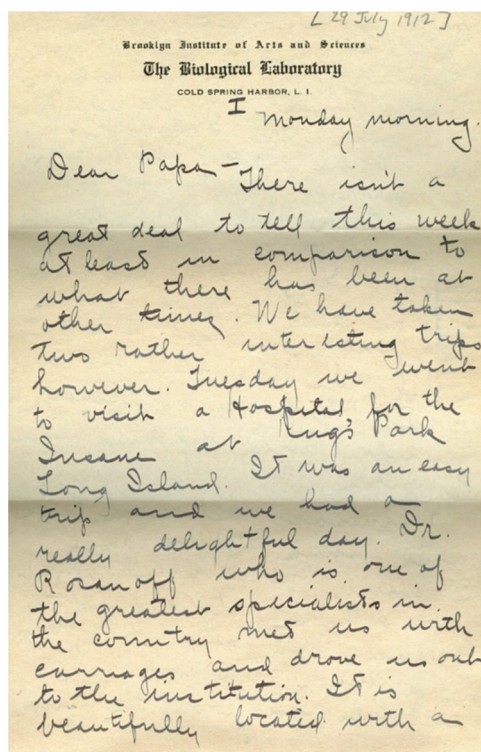 [29 July 1912]
Brooklyn Institute of Arts and Sciences
The Biological Laboratory
COLD SPRING HARBOR, L. I.
I
Monday morning.
Dear Papa - There isn't a
great deal to tell this week
at least in comparison to
what there has been at
other times. We have taken
two rather interesting trips
however. Tuesday we went
to visit a Hospital for the
Insane at King's Park
Long Island. It was an easy
trip and we had a
really delightful day. Dr.
Rosanoff who is one of
the greatest specialists in
the country met us with
carriages and drove us out
to the institution. It is
beautifully located with a